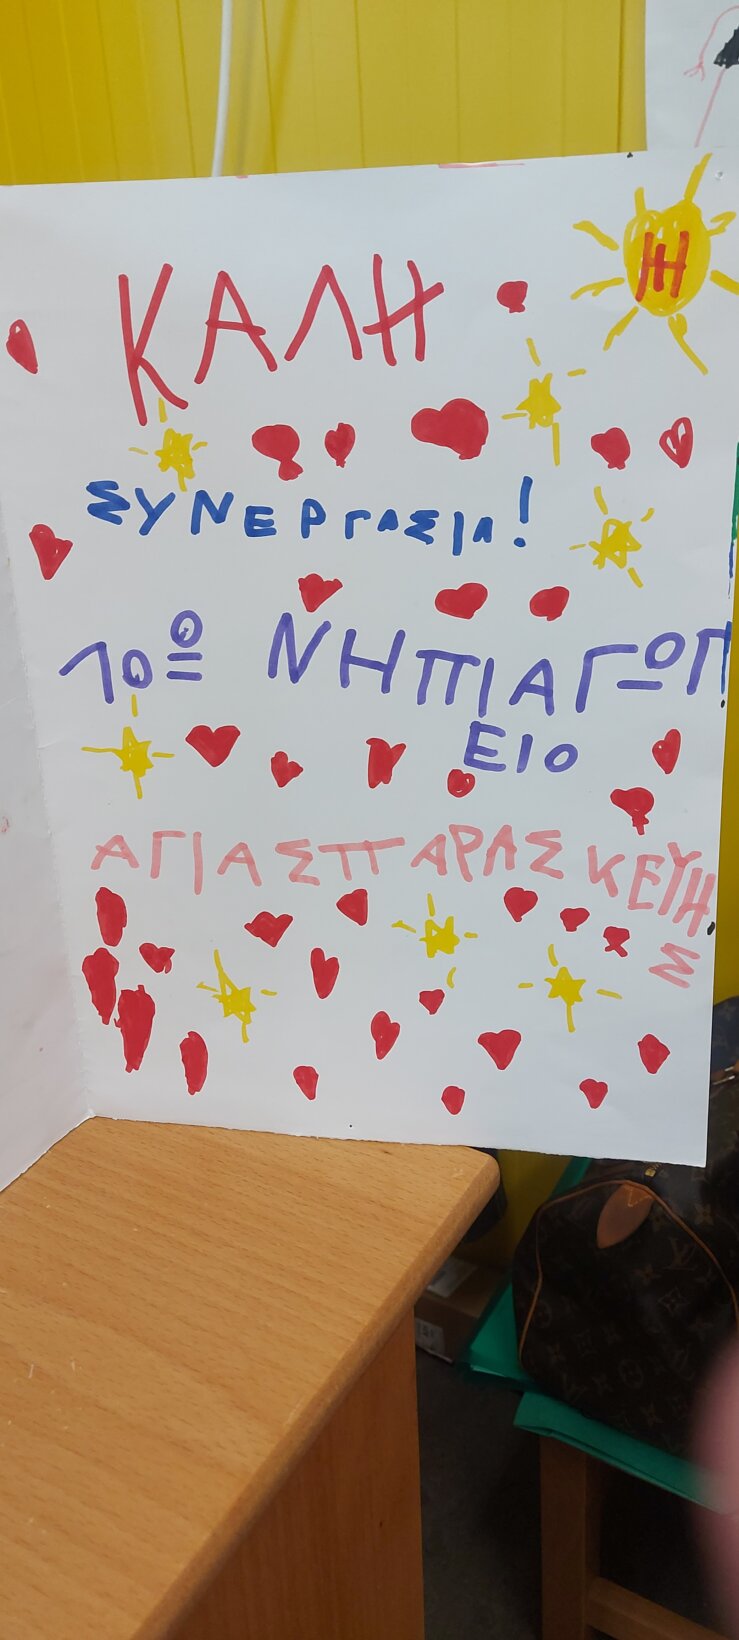 ΚΑΛΗ
ΣΥΝΕΡΓΑΣΙΑ!
10º ΝΗΠΙΑΓΩΓ
ΕΙΟ
ΑΓΙΑΣ ΠΑΡΑΣΚΕΥΗ
Σ